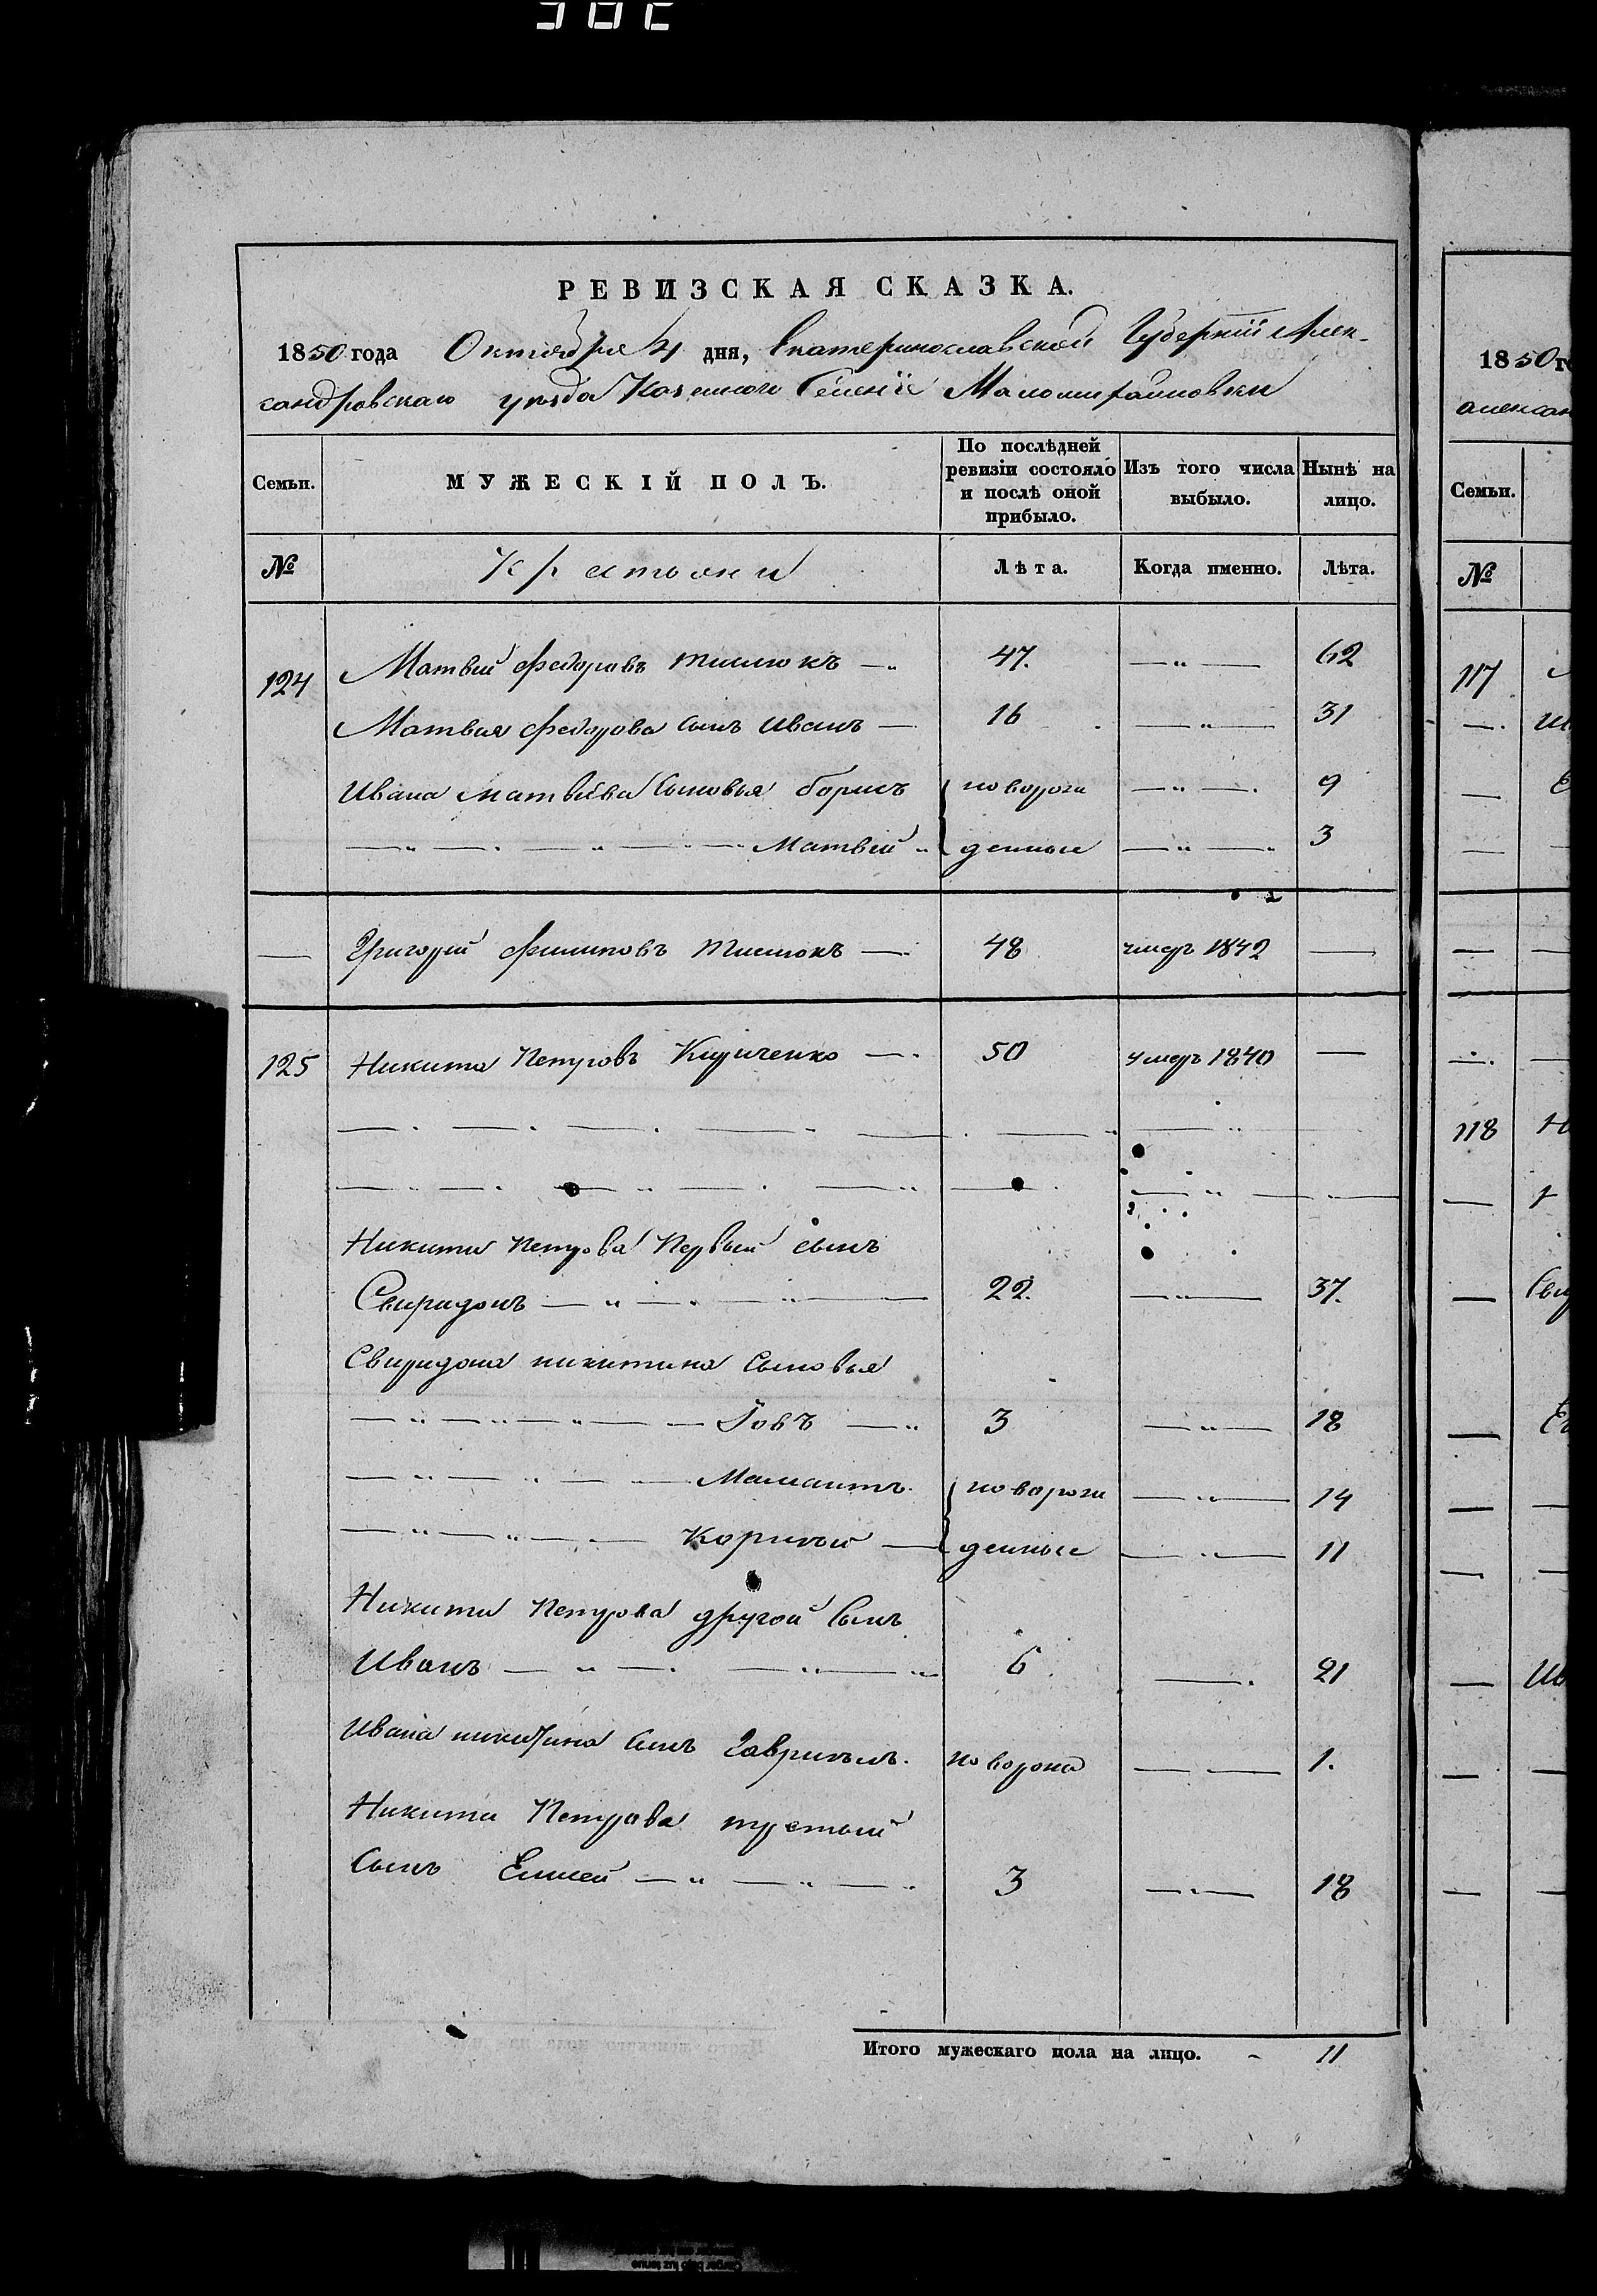 РЕВИЗСКАЯ СКАЗКА.
1850 года Октября 4 дня, Екатеринославской Губернiи Алек-
сандровскаго уѣзда Казенного Селенiя Маломихайловки
Семьи. МУЖЕСКIЙ ПОЛЪ. По послѣдней ревизiи состояло и послѣ оной прибыло. Изъ того числа выбыло. Нынѣ на лицо.
№ Крестьяни Лѣта. Когда именно. Лѣта.
124 Матвей Федоровъ Тислюкъ — 47. — „ — 62
Матвея Федорова сынъ Иванъ — 16 — „ — 31
Ивана Матвѣева сыновья Борисъ новорож — „ — 9
— „ — Матвей „ денные — „ — 3
— Григорiй Филиповъ Тислюкъ — 48 умеръ 1842 —
125 Никита Петровъ Кириченко — 50 умеръ 1840 —
Никиты Петрова Первый сынъ
Свиридонъ — „ — 22. — „ — 37.
Свиридона никитина сыновья
— „ — Iовъ — „ 3 — „ — 18
— „ — Мамантъ. новорож — „ — 14
— „ — Корнѣй — денные — „ — 11
Никиты Петрова другой сынъ
Иванъ — „ — 6 — 21
Ивана никитина сынъ Гаврiилъ. новорож — — 1.
Никиты Петрова третый
сынъ Елисей — „ — 3 — „ — 18
Итого мужескаго пола на лицо. - 11
1850 го
алексан
Семьи.
№
117
118